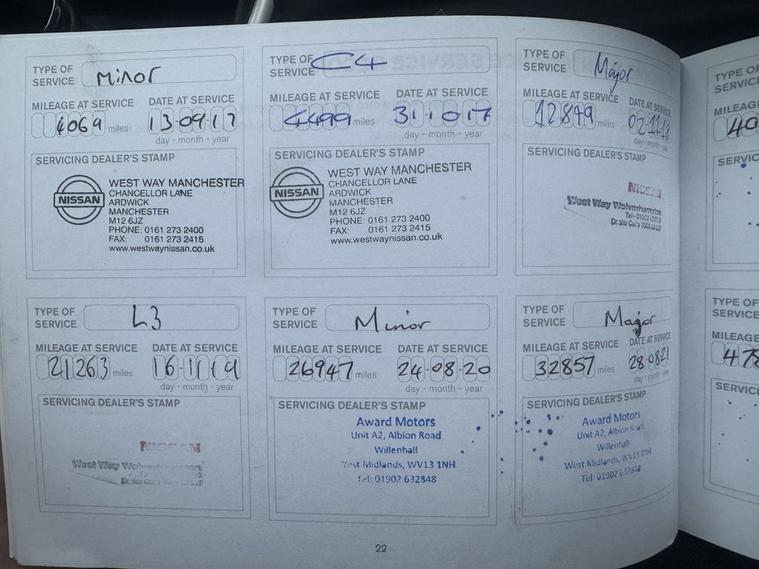 TYPE OF SERVICE Minor
MILEAGE AT SERVICE DATE AT SERVICE
6069 miles 13-09-17
day - month - year
SERVICING DEALER'S STAMP
NISSAN
WEST WAY MANCHESTER
CHANCELLOR LANE
ARDWICK
MANCHESTER
M12 6JZ
PHONE: 0161 273 2400
FAX: 0161 273 2415
www.westwaynissan.co.uk
TYPE OF SERVICE C4
MILEAGE AT SERVICE DATE AT SERVICE
miles 31-10-17
day - month - year
SERVICING DEALER'S STAMP
NISSAN
WEST WAY MANCHESTER
CHANCELLOR LANE
ARDWICK
MANCHESTER
M12 6JZ
PHONE: 0161 273 2400
FAX: 0161 273 2415
www.westwaynissan.co.uk
TYPE OF SERVICE Major
MILEAGE AT SERVICE DATE AT SERVICE
12879 miles 02-11-18
day - month - year
SERVICING DEALER'S STAMP
NISSAN
West Way Wolverhampton
TYPE OF SERVICE L3
MILEAGE AT SERVICE DATE AT SERVICE
21263 miles 16-11-19
day - month - year
SERVICING DEALER'S STAMP
NISSAN
West Way Wolverhampton
TYPE OF SERVICE Minor
MILEAGE AT SERVICE DATE AT SERVICE
26947 miles 24-08-20
day - month - year
SERVICING DEALER'S STAMP
Award Motors
Unit A2, Albion Road
Willenhall
West Midlands, WV13 1NH
Tel: 01902 632848
TYPE OF SERVICE Major
MILEAGE AT SERVICE DATE AT SERVICE
32857 miles 28-08-21
day - month - year
SERVICING DEALER'S STAMP
Award Motors
Unit A2, Albion Road
Willenhall
West Midlands, WV13 1NH
Tel: 01902 632848
22